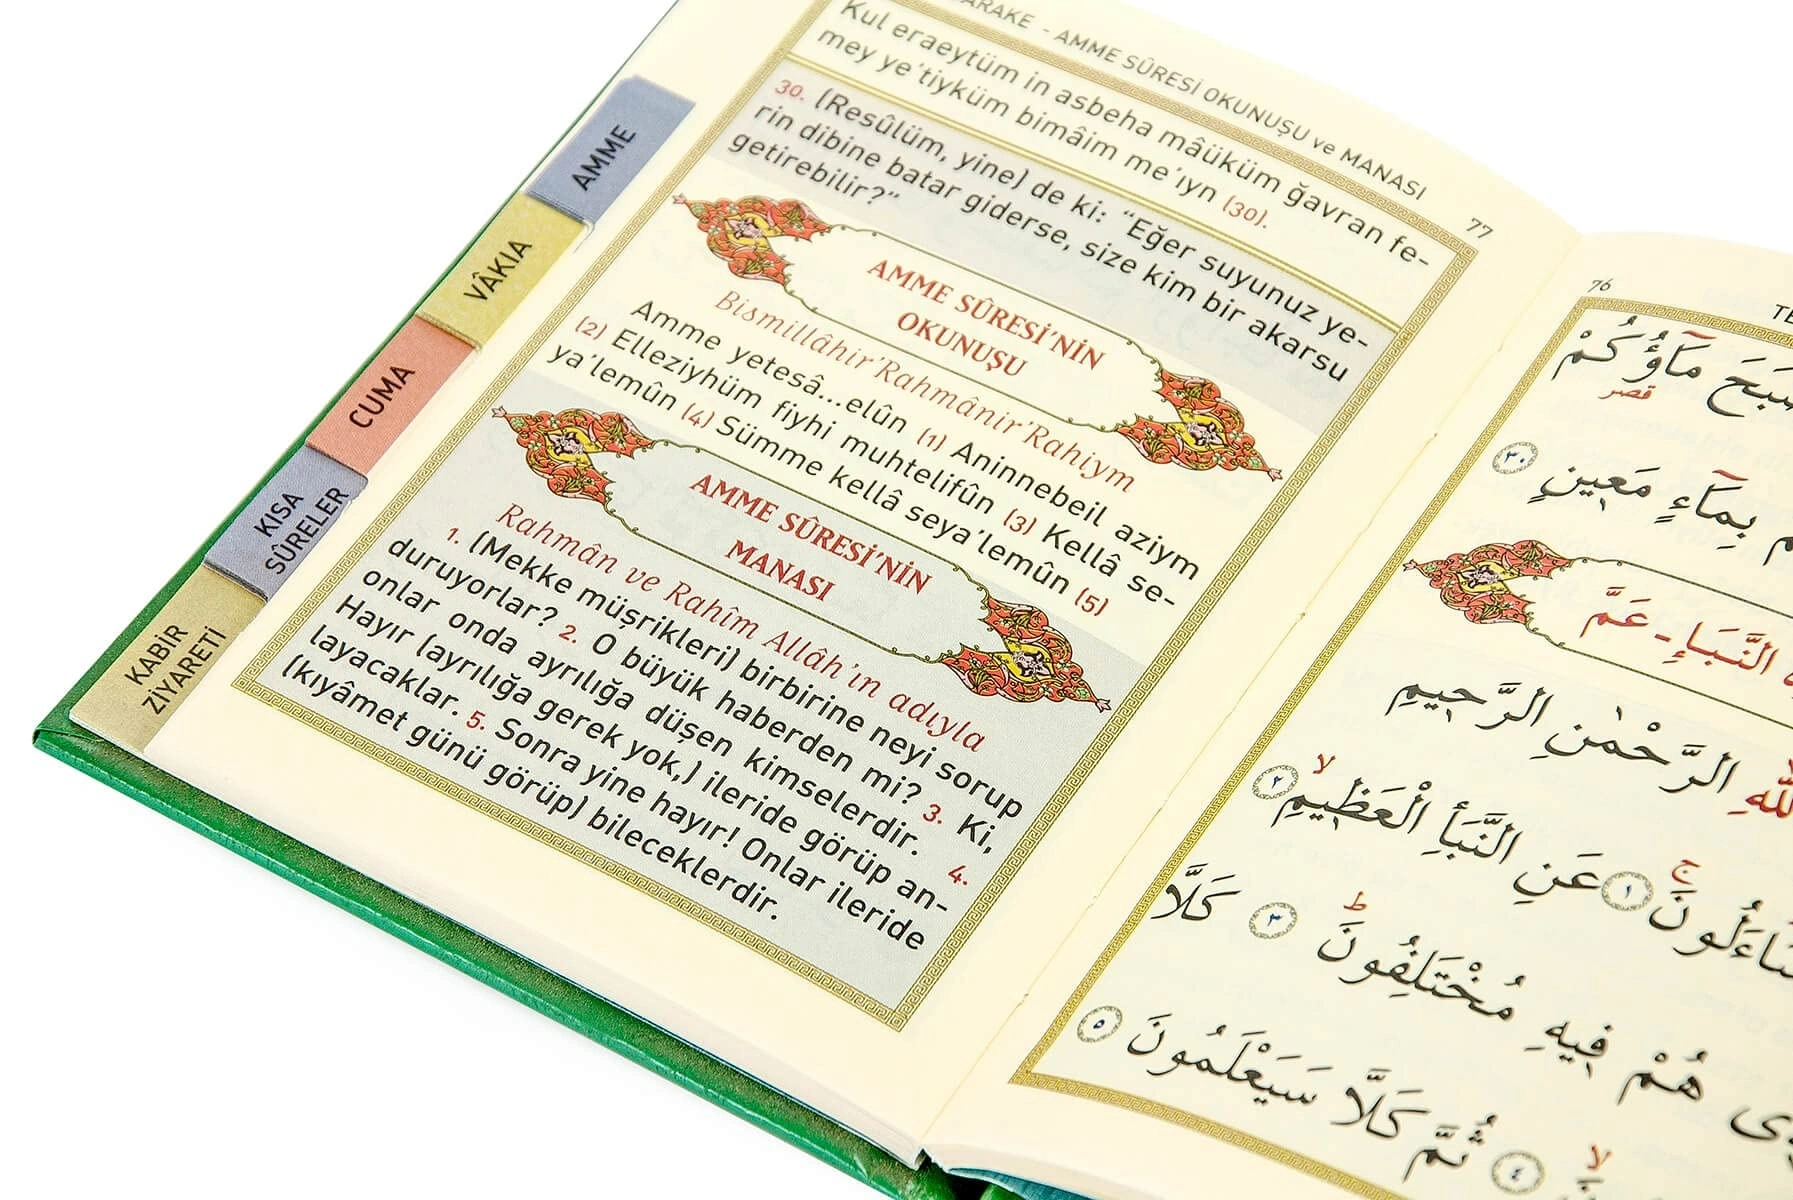 AMME
VÂKIA
CUMA
KISA
SÛRELER
KABİR
ZİYARETİ
- AMME SÛRESİ OKUNUŞU ve MANASI
77
Kul eraeytüm in asbeha mâüküm ğavran fe-
mey ye'tiyküm bimâim me'ıyn (30).
30. (Resûlüm, yine) de ki: “Eğer suyunuz ye-
rin dibine batar giderse, size kim bir akarsu
getirebilir?”
AMME SÛRESİ'NİN
OKUNUŞU
Bismillâhir'Rahmânir'Rahiym
Amme yetesâ...elûn (1) Aninnebeil aziym
(2) Elleziyhüm fiyhi muhtelifûn (3) Kellâ se-
ya'lemûn (4) Sümme kellâ seya'lemûn (5)
AMME SÛRESİ'NİN
MANASI
Rahmân ve Rahîm Allâh'ın adıyla
1. (Mekke müşrikleri) birbirine neyi sorup
duruyorlar? 2. O büyük haberden mi? 3. Ki,
onlar onda ayrılığa düşen kimselerdir. 4.
Hayır (ayrılığa gerek yok,) ileride görüp an-
layacaklar. 5. Sonra yine hayır! Onlar ileride
(kıyâmet günü görüp) bileceklerdir.
76
مَٓاؤُ۬كُمْ
قصر
بِمَٓاءٍ مَع۪ينٍ ٣٠
النَّبَأِ - عَمَّ
الرَّحْمٰنِ الرَّح۪يمِ
١ عَنِ النَّبَأِ الْعَظ۪يمِۙ ٢
هُمْ ف۪يهِ مُخْتَلِفُونَۜ ٣ كَلَّا
٤ ثُمَّ كَلَّا سَيَعْلَمُونَ ٥